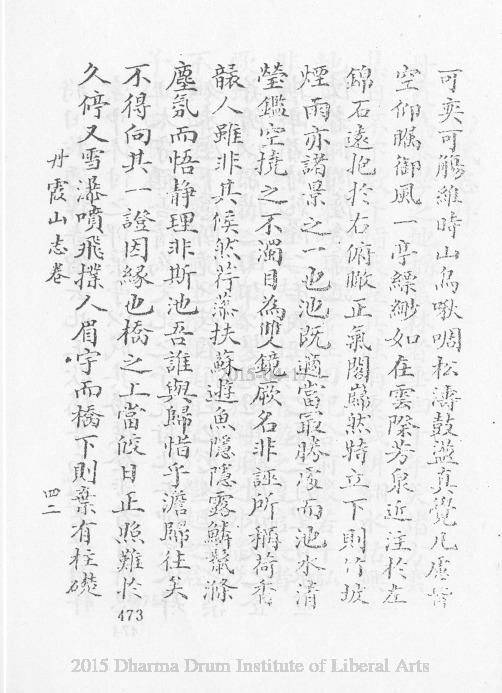 可奕可觴維時山鳥啾啁松濤鼓盪真覺凡慮皆
空仰矚御風一亭縹緲如在雲際芳泉近注於左
錦石遠抱於右俯瞰正氣閣巋然特立下則竹坡
煙雨亦諸景之一也池既適當最勝處而池水清
瑩鑑空撓之不濁目為雙鏡厥名非誣所稱荷香
襲人雖非其候然荇藻扶蘇遊魚隱隱露鱗鬣滌
塵氛而悟静理非斯池吾誰與歸惜乎澹歸往矣
不得向其一證因緣也橋之上當皎日正照難於
久停又雪瀑噴飛撲人眉宇而橋下則棄有柱礎
丹霞山志卷
四二
473
2015 Dharma Drum Institute of Liberal Arts